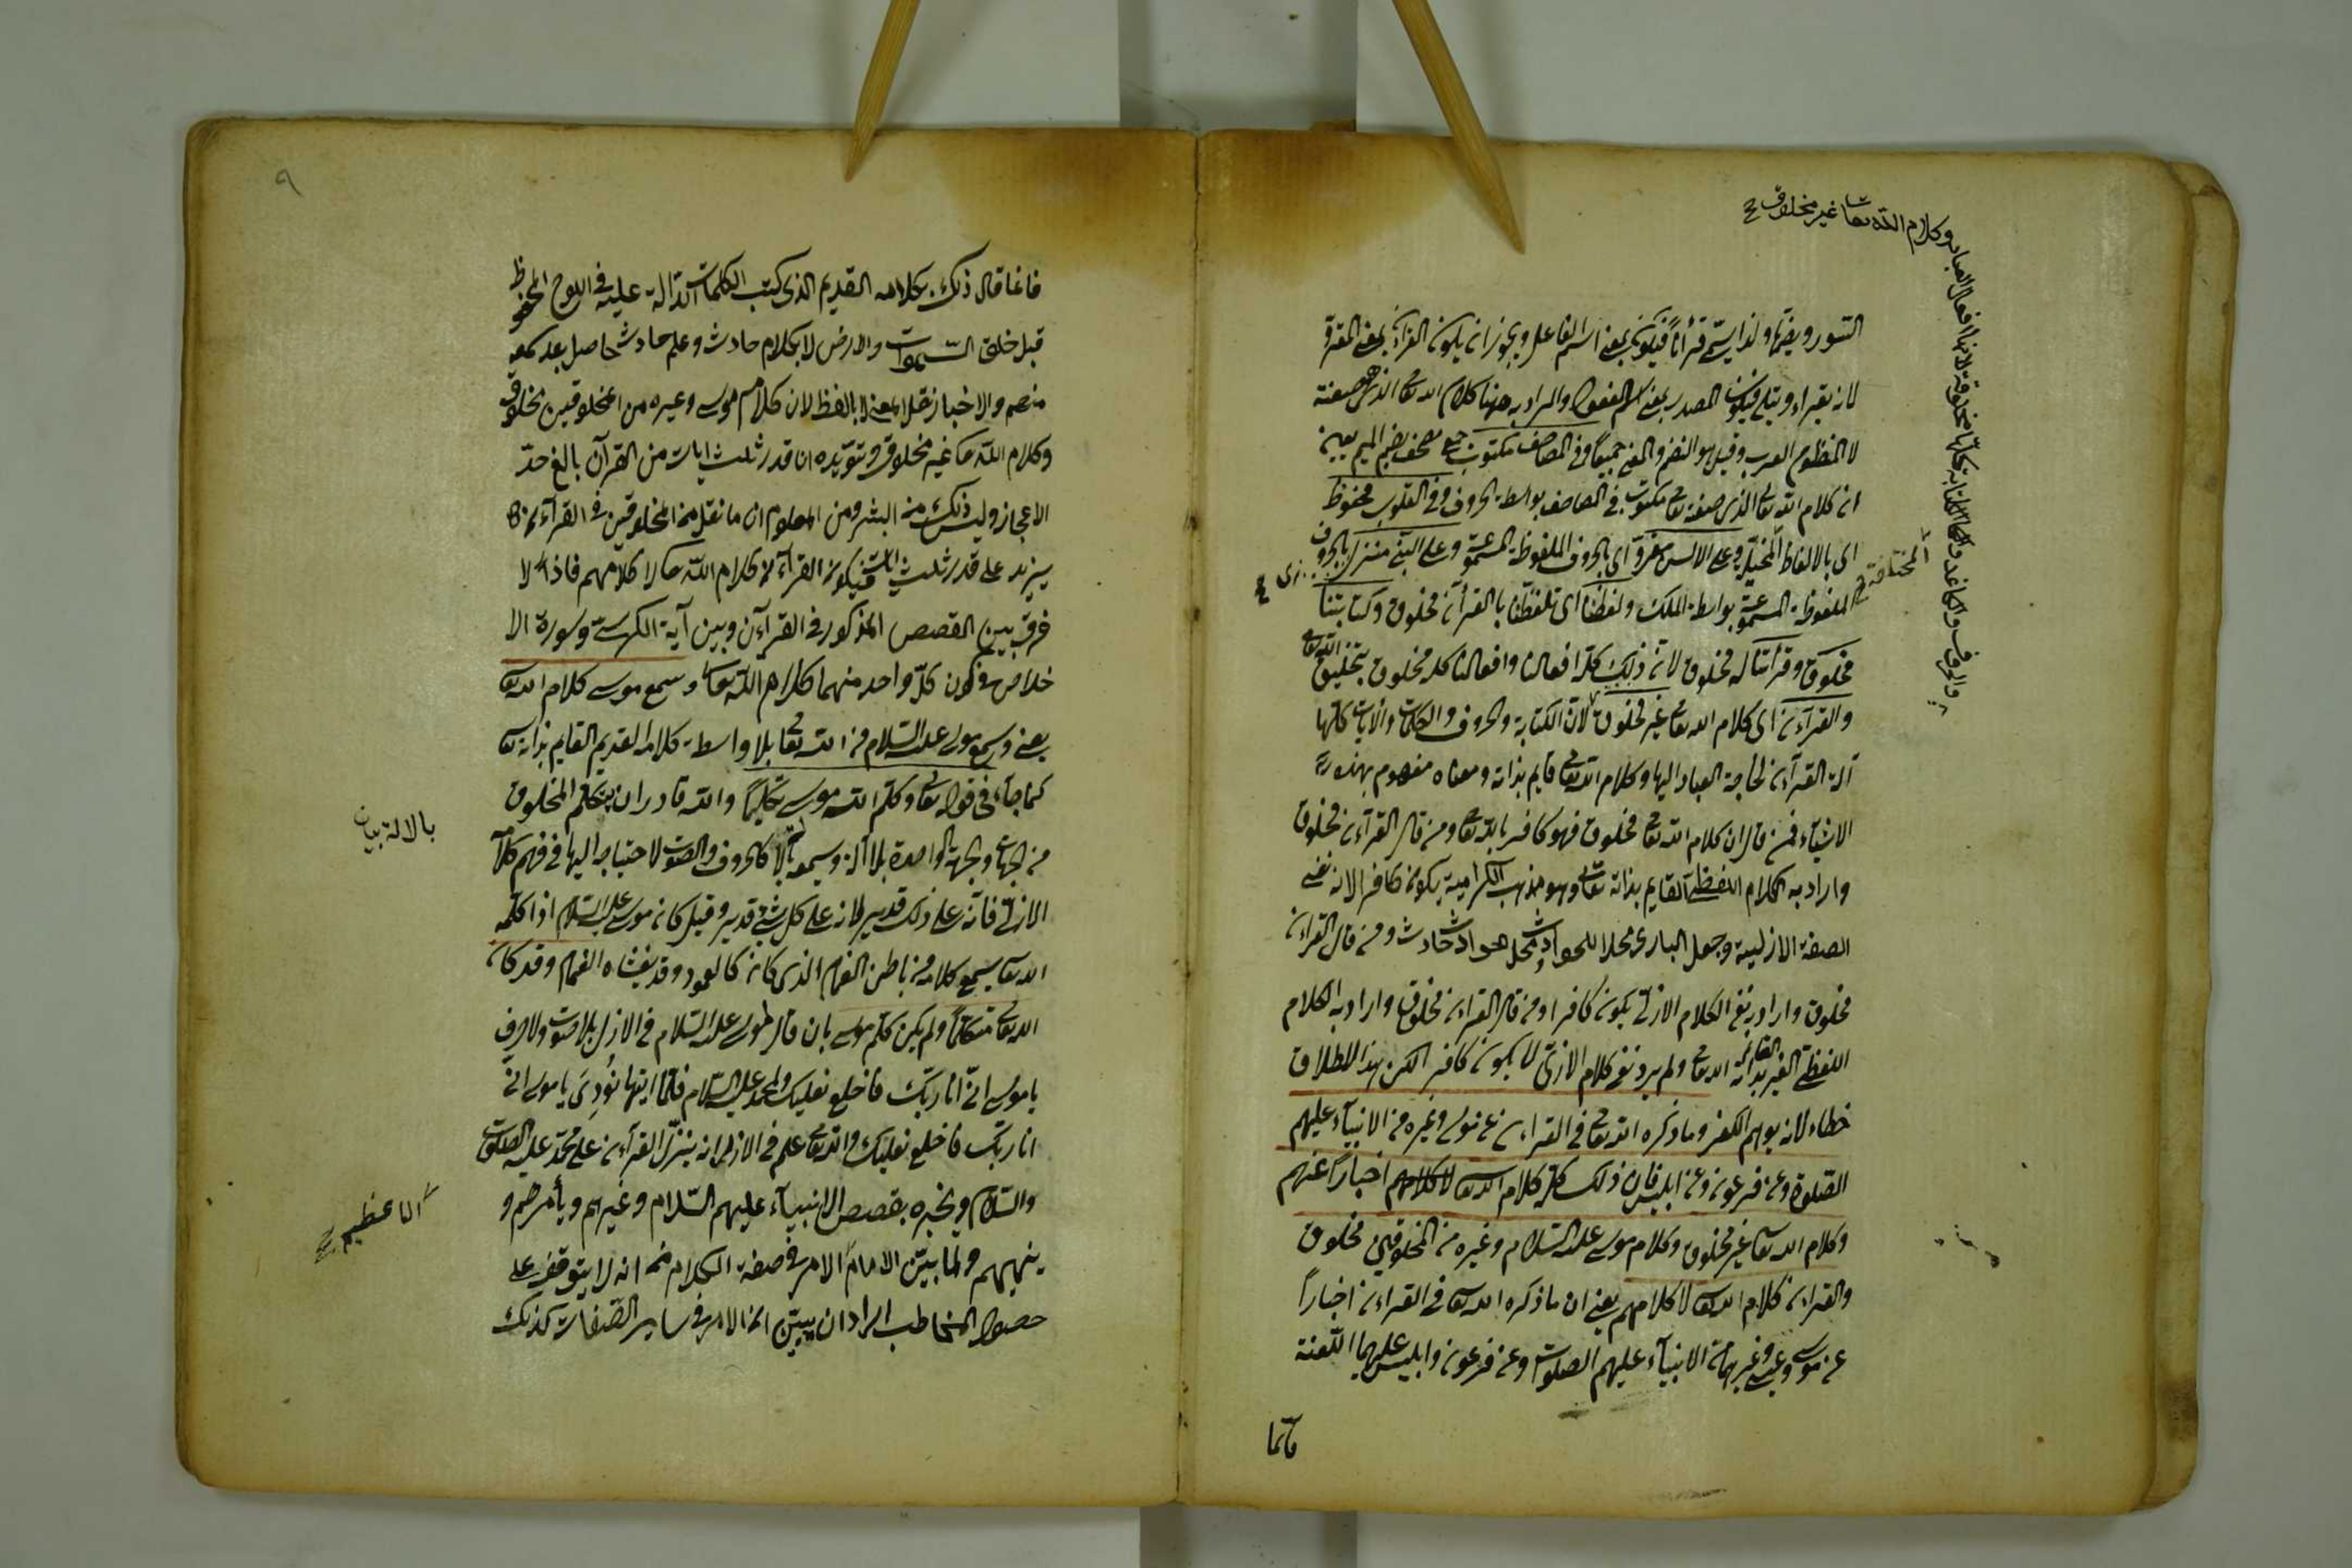 وكلام الله تعا غير مخلوق صح
والحروف والكاغد والكتابة كلها مخلوقة لانها افعال العباد
السور ويضمها ولذا يسمى قرأناً فيكون بمعنى اسم الفاعل ويجوز ان يكون القرآن بمعنى المقرؤ
لانه يقراء ويتلى فيكون المصدر بمعنى اسم المفعول والمراد به ههنا كلام الله تعا الذى هو صفته
لا المنظوم العربى وقيل هو النظم والمعنى جميعاً وفى المصاحف مكتوب جمع مصحف بضم الميم يعنى
ان كلام الله تعا الذى صفته تعا مكتوب فى المصاحف بواسطة الحروف وفى القلوب محفوظ
اى بالالفاظ المخيلة وعلى الالسن مقروّ اى بالحروف الملفوظة المسموعة وعلى النبى منزل بالحروف
الملفوظة المسموعة بواسطة الملك ولفظنا اى تلفظنا بالقرأن مخلوق وكتابتنا
مخلوق وقرأتنا له مخلوق لان ذلك كله افعالنا وافعالنا كله مخلوق بتخليق الله تعا
والقرآن اى كلام الله تعا غير مخلوق لان الكتابة والحروف والكلمات والايات كلها
آلة القرآن لحاجة العباد اليها وكلام الله تعا قايم بذاته ومعناه مفهوم بهذه
الاشياء فمن قال ان كلام الله تعا مخلوق فهو كافر بالله تعا ومن قال القرآن مخلوق
واراد به الكلام اللفظى القايم بذاته تعا وهو مذهب الكرامية يكون كافرا لانه نفى
الصفة الازلية وجعل البارى محلا للحوادث ومحل الحوادث حادث ومن قال القرأن
مخلوق واراد به نفى الكلام الازلى يكون كافرا ومن قال القرأن مخلوق واراد به الكلام
اللفظى الغير القائم بذاته الله تعا ولم يرد نفى كلام الازلى لا يكون كافر لكن هذا الاطلاق
خطاء لانه يوهم الكفر وما ذكره الله تعا فى القرأن عن موسى وغيره من الانبيآء عليهم
الصلوة وعن فرعون وعن ابليس فان ذلك كله كلام الله تعا لا كلامهم اخباراً عنهم
وكلام الله تعا غير مخلوق وكلام موسى عليه السلام وغيره من المخلوقين مخلوق
والقرأن كلام الله تعا لا كلامهم يعنى ان ما ذكره الله تعا فى القرأن اخباراً
عن موسى وعيسى وغيرهما من الانبيآء عليهم الصلوات وعن فرعون وابليس عليهما اللعنة
فانما
٩
فانما قال ذلك بكلامه القديم الذى كتب الكلمات الدالة عليه فى اللوح المحفوظ
قبل خلق السموات والارض لا بكلام حادث وعلم حادث حاصل بعد سمعه
منهم والاخبار نقلا لمعنى لا بالفظ لان كلام موسى وغيره من المخلوقين مخلوق
وكلام الله تعا غير مخلوق ويؤيده ان قدر ثلث ايات من القرآن بالغ حدّ
الاعجاز وليس ذلك من البشر ومن المعلوم ان ما نقل من المخلوقين فى القرآن
يزيد على قدر ثلث ايات فيكون القرآن كلام الله تعا لا كلامهم فاذا لا
فرق بين القصص المذكور فى القرآن وبين آية الكرسى وسورة الا
خلاص فى كون كلّ واحد منهما كلام الله تعا وسمع موسى كلام الله تعا
يعنى وسمع موسى عليه السلام من الله تعا بلا واسطة كلامه القديم القايم بذاته تعا
كما جآء فى قوله تعا وكلّم الله موسى تكليماً والله قادر ان يتكلم المخلوق
من الجهات والجهة الواحدة بلا آلة ويسمعه بالآلة كالحروف والصوت لاحتياجه اليها فى فهم كلامه
الازلى فانه على ذلك قدير لانه على كل شئ قدير وقيل كان موسى عليه السلام اذا كلّمه
الله تعا يسمع كلامه من باطن الغمام الذى كان كالعمود وقد يغشاه الغمام وقد كان
الله تعا متكلماً ولم يكن كلّم موسى بان قال لموسى عليه السلام فى الازل بلا صوت ولا حرف
ياموسى انّى انا ربّك فاخلع نعليك ولمحمد عليه السلام فلمّا ايتها نُودِىَ ياموسى انّى
انا ربّك فاخلع نعليك والله تعا علم فى الازل انه ينزّل القرآن على محمّد عليه الصلوت
والسلام ويخبره بقصص الانبيآء عليهم السّلام وغيرهم ويأمرهم و
ينهيهم ولما بيّن الامام الامر فى صفة الكلام من انه لا يتوقف على
حصول المخاطب اراد ان يبيّن ان الامر فى ساير الصّفات كذلك
بالالة بيان
الاعظم صح